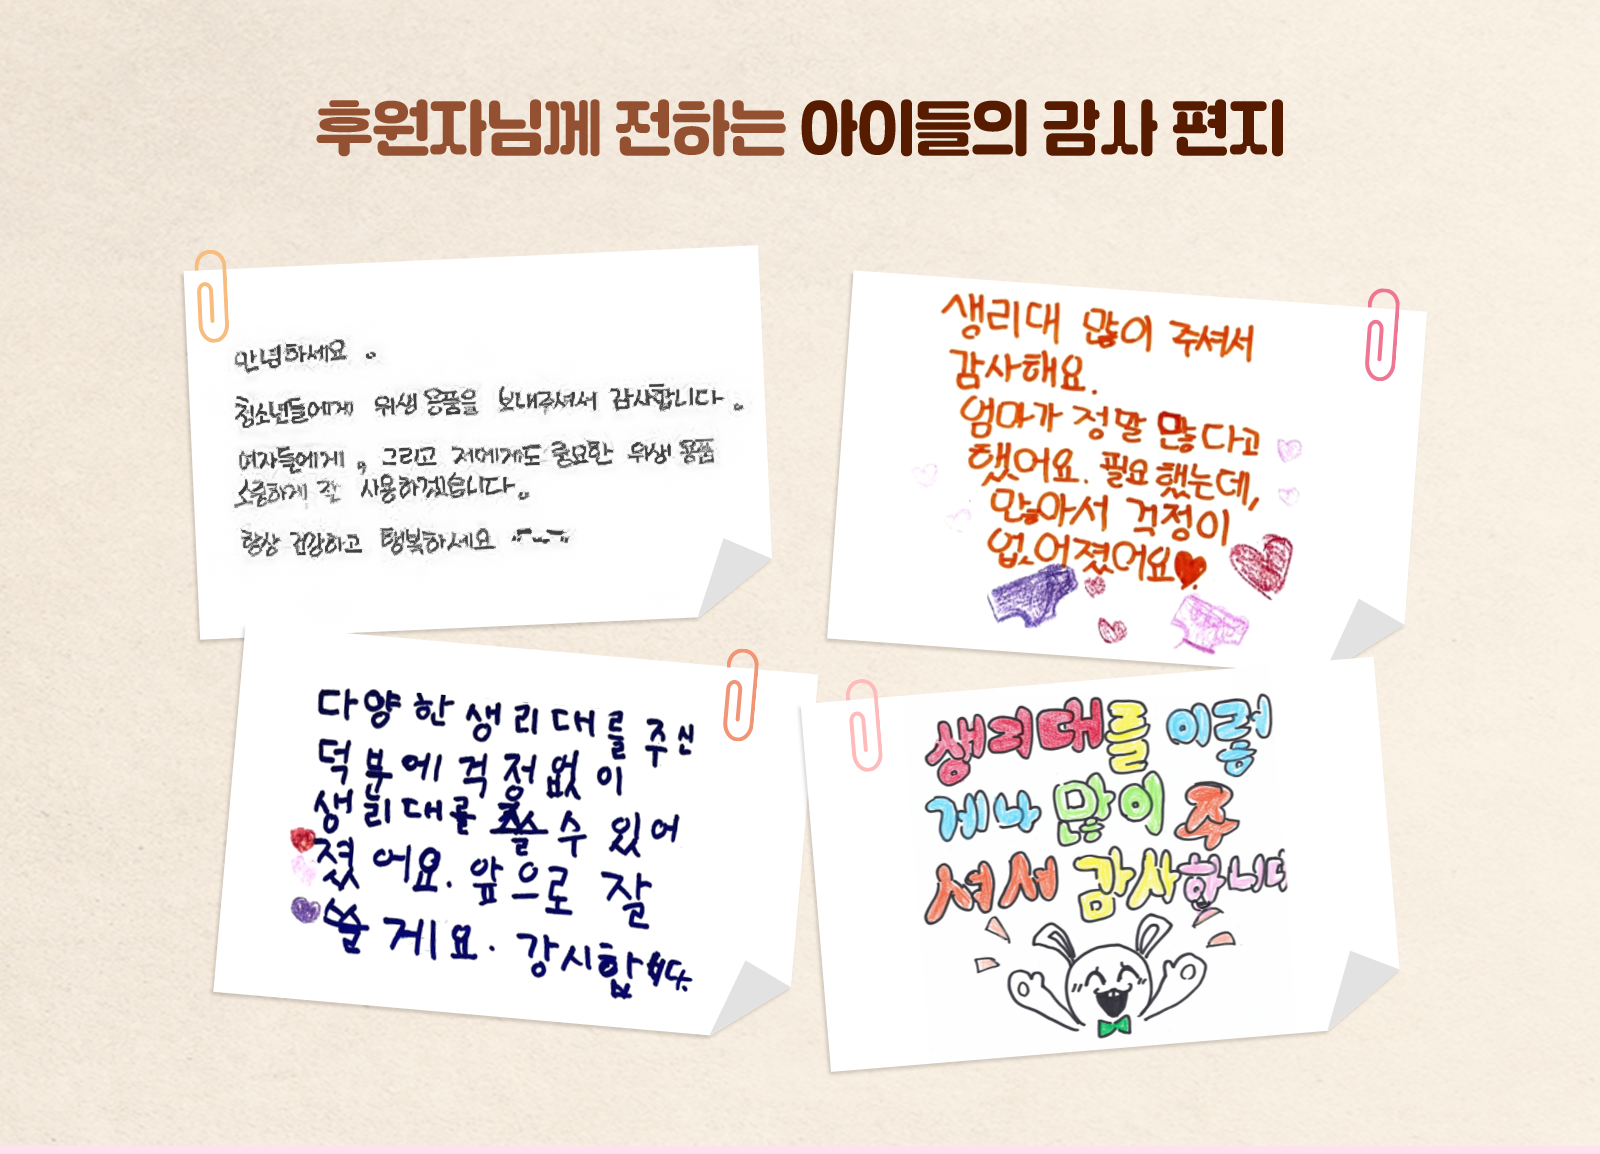 후원자님께 전하는 아이들의 감사 편지
안녕하세요.
청소년들에게 위생 용품을 보내주셔서 감사합니다.
여자들에게, 그리고 저에게도 중요한 위생 용품
소중하게 잘 사용하겠습니다.
항상 건강하고 행복하세요 ^~^
생리대 많이 주셔서
감사해요.
엄마가 정말 많다고
했어요. 필요했는데,
많아서 걱정이
없어졌어요♥
다양한 생리대를 주신
덕분에 걱정없이
생리대를 쓸 수 있어
졌어요. 앞으로 잘
쓸게요. 감사합니다.
생리대를 이렇
게나 많이 주
셔서 감사합니다